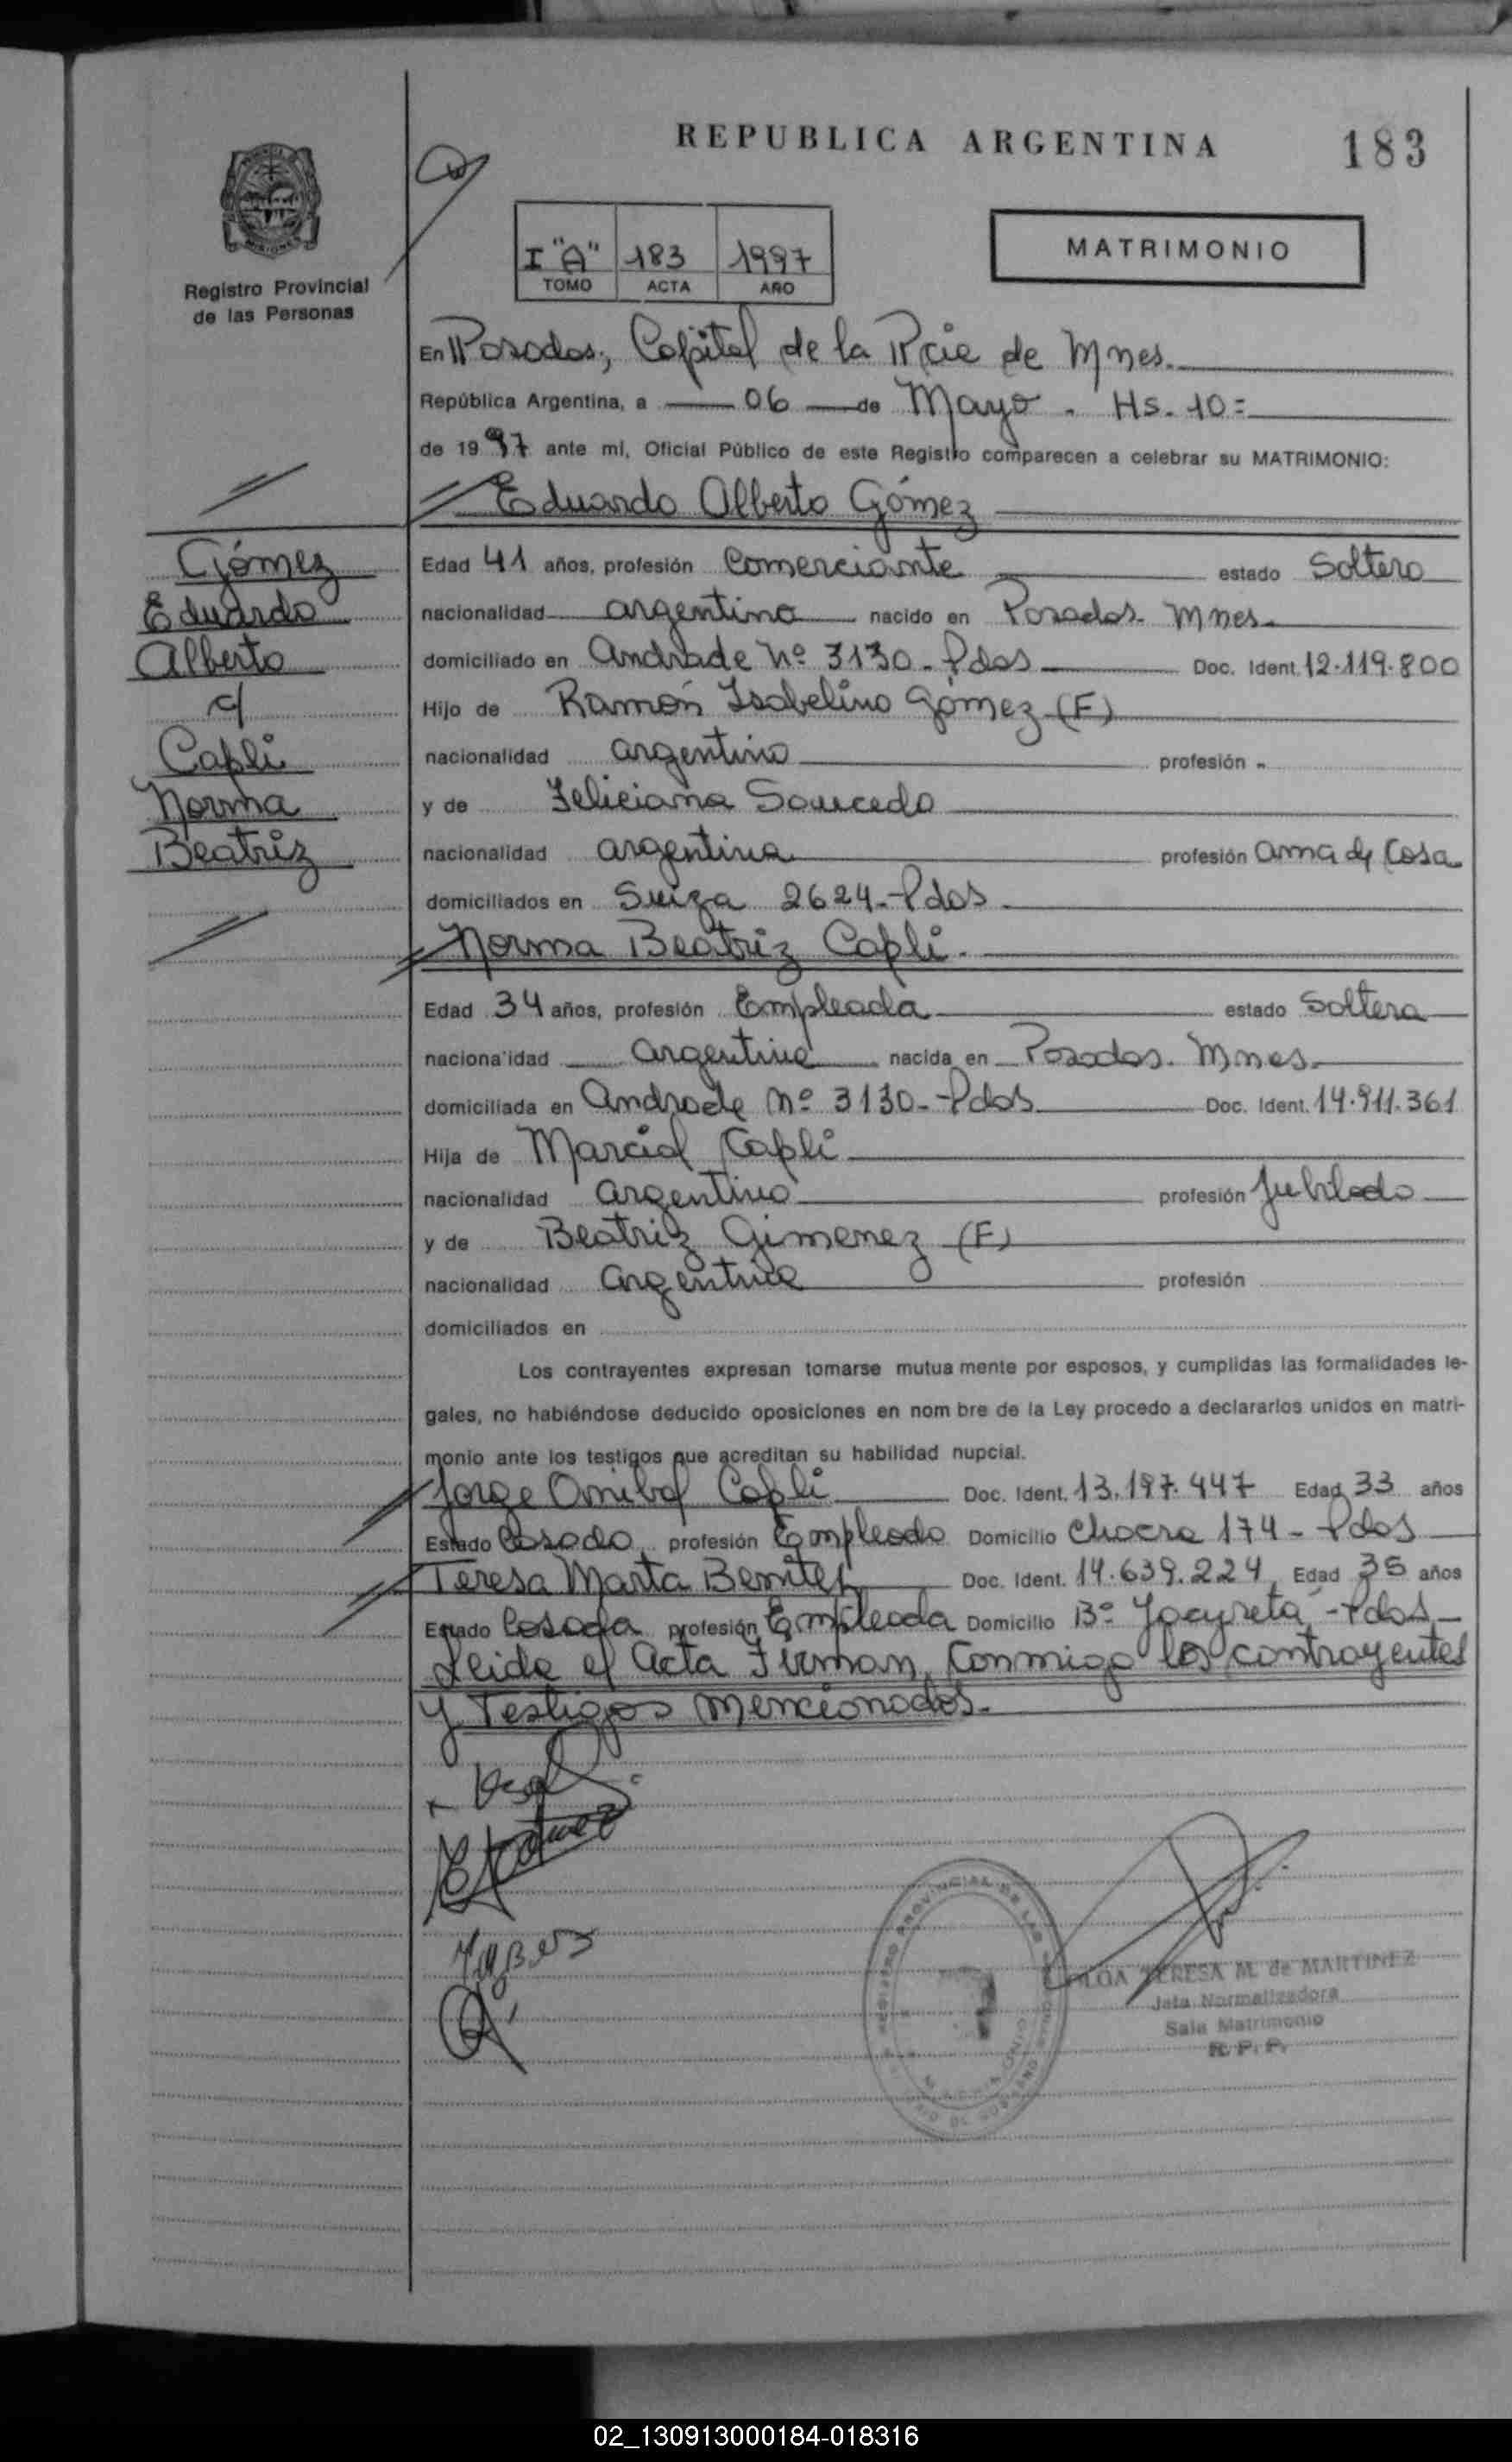 REPUBLICA ARGENTINA 183
Registro Provincial
de las Personas
I "A" 183 1997
TOMO ACTA AÑO
MATRIMONIO
En Posadas, Capital de la Pcie de Mnes.
República Argentina, a 06 de Mayo. Hs. 10=
de 1997 ante mi, Oficial Público de este Registro comparecen a celebrar su MATRIMONIO:
Eduardo Alberto Gómez
Gómez
Eduardo
Alberto
c/
Capli
Norma
Beatriz
Edad 41 años, profesión Comerciante estado Soltero
nacionalidad argentino nacido en Posadas. Mnes.
domiciliado en Andrade Nº 3130-Pdas Doc. Ident. 12.119.800
Hijo de Ramón Isabelino Gómez (F)
nacionalidad argentino profesión -
y de Feliciana Saucedo
nacionalidad argentina profesión ama de Casa
domiciliados en Suiza 2624-Pdas
Norma Beatriz Capli.
Edad 34 años, profesión Empleada estado Soltera
nacionalidad Argentina nacida en Posadas. Mnes.
domiciliada en Andrade Nº 3130-Pdas Doc. Ident. 14.911.361
Hija de Marcial Capli
nacionalidad argentino profesión Jubilado
y de Beatriz Gimenez (F)
nacionalidad argentina profesión
domiciliados en
Los contrayentes expresan tomarse mutua mente por esposos, y cumplidas las formalidades le-
gales, no habiéndose deducido oposiciones en nom bre de la Ley procedo a declararlos unidos en matri-
monio ante los testigos que acreditan su habilidad nupcial.
Jorge Anibal Capli Doc. Ident. 13.197.447 Edad 33 años
Estado Casado profesión Empleado Domicilio Chacra 174-Pdas
Teresa Marta Benitez Doc. Ident. 14.639.224 Edad 35 años
Estado Casada profesión Empleada Domicilio Bº Yacyreta-Pdas
Leida el Acta Firman Conmigo los contrayentes
y Testigos mencionados.
REGISTRO PROVINCIAL DE LAS
OLGA TERESA M. de MARTINEZ
Jefa Normalizadora
Sala Matrimonio
R. P. P.
02_130913000184-018316